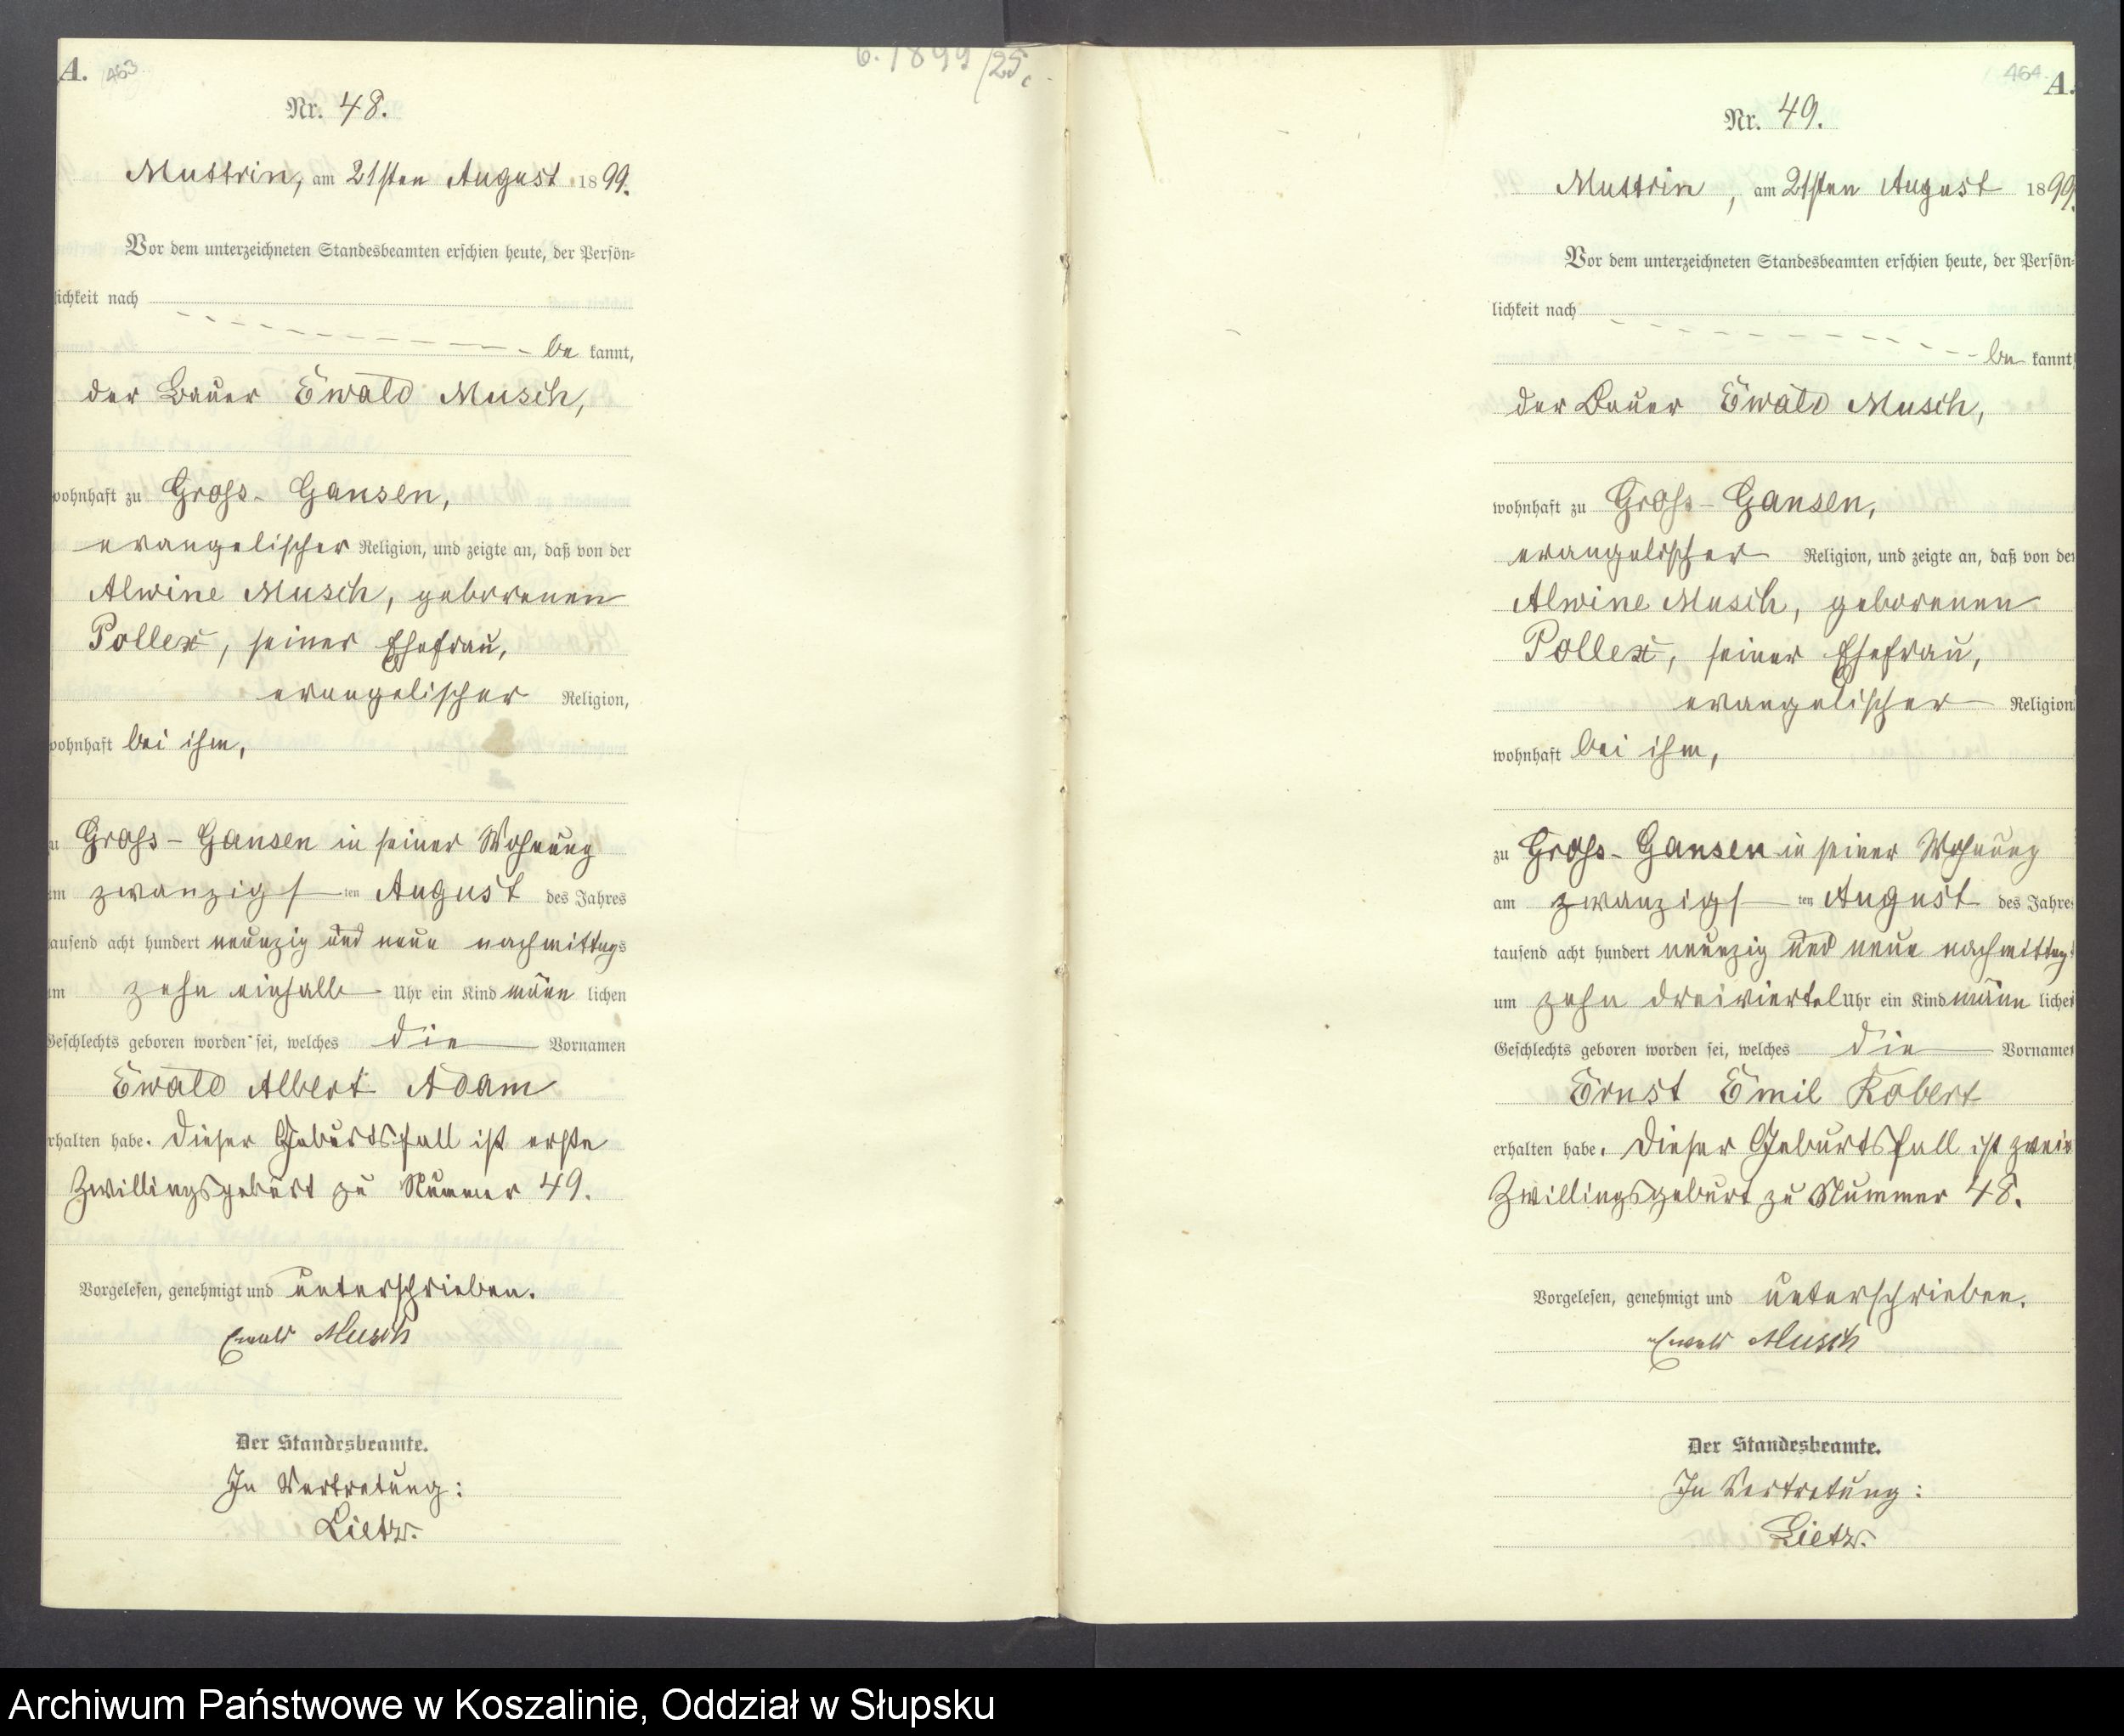 A. 463
6. 1899/25.
Nr. 48.
Muttrin, am 21sten August 1899.
Vor dem unterzeichneten Standesbeamten erschien heute, der Persön=
lichkeit nach
be kannt,
der Bauer Ewald Musch,
wohnhaft zu Gross-Gansen,
evangelischer Religion, und zeigte an, daß von der
Alwine Musch, geborenen
Pollex, seiner Ehefrau,
evangelischer Religion,
wohnhaft bei ihm,
zu Gross-Gansen in seiner Wohnung
am zwanzigsten August des Jahres
tausend acht hundert neunzig und neun nachmittags
um zehn einhalb Uhr ein Kind männlichen
Geschlechts geboren worden sei, welches die Vornamen
Ewald Albert Adam
erhalten habe. Dieser Geburtsfall ist erste
Zwillingsgeburt zu Nummer 49.
Vorgelesen, genehmigt und unterschrieben.
Ewald Musch
Der Standesbeamte.
In Vertretung:
Lietz.
464 A.
Nr. 49.
Muttrin, am 21sten August 1899.
Vor dem unterzeichneten Standesbeamten erschien heute, der Persön=
lichkeit nach
be kannt,
der Bauer Ewald Musch,
wohnhaft zu Gross-Gansen,
evangelischer Religion, und zeigte an, daß von der
Alwine Musch, geborenen
Pollex, seiner Ehefrau,
evangelischer Religion
wohnhaft bei ihm,
zu Gross-Gansen in seiner Wohnung
am zwanzigsten August des Jahres
tausend acht hundert neunzig und neun nachmittag
um zehn dreiviertel Uhr ein Kind männlichen
Geschlechts geboren worden sei, welches die Vornamen
Ernst Emil Robert
erhalten habe. Dieser Geburtsfall ist zweite
Zwillingsgeburt zu Nummer 48.
Vorgelesen, genehmigt und unterschrieben.
Ewald Musch
Der Standesbeamte.
In Vertretung:
Lietz.
Archiwum Państwowe w Koszalinie, Oddział w Słupsku